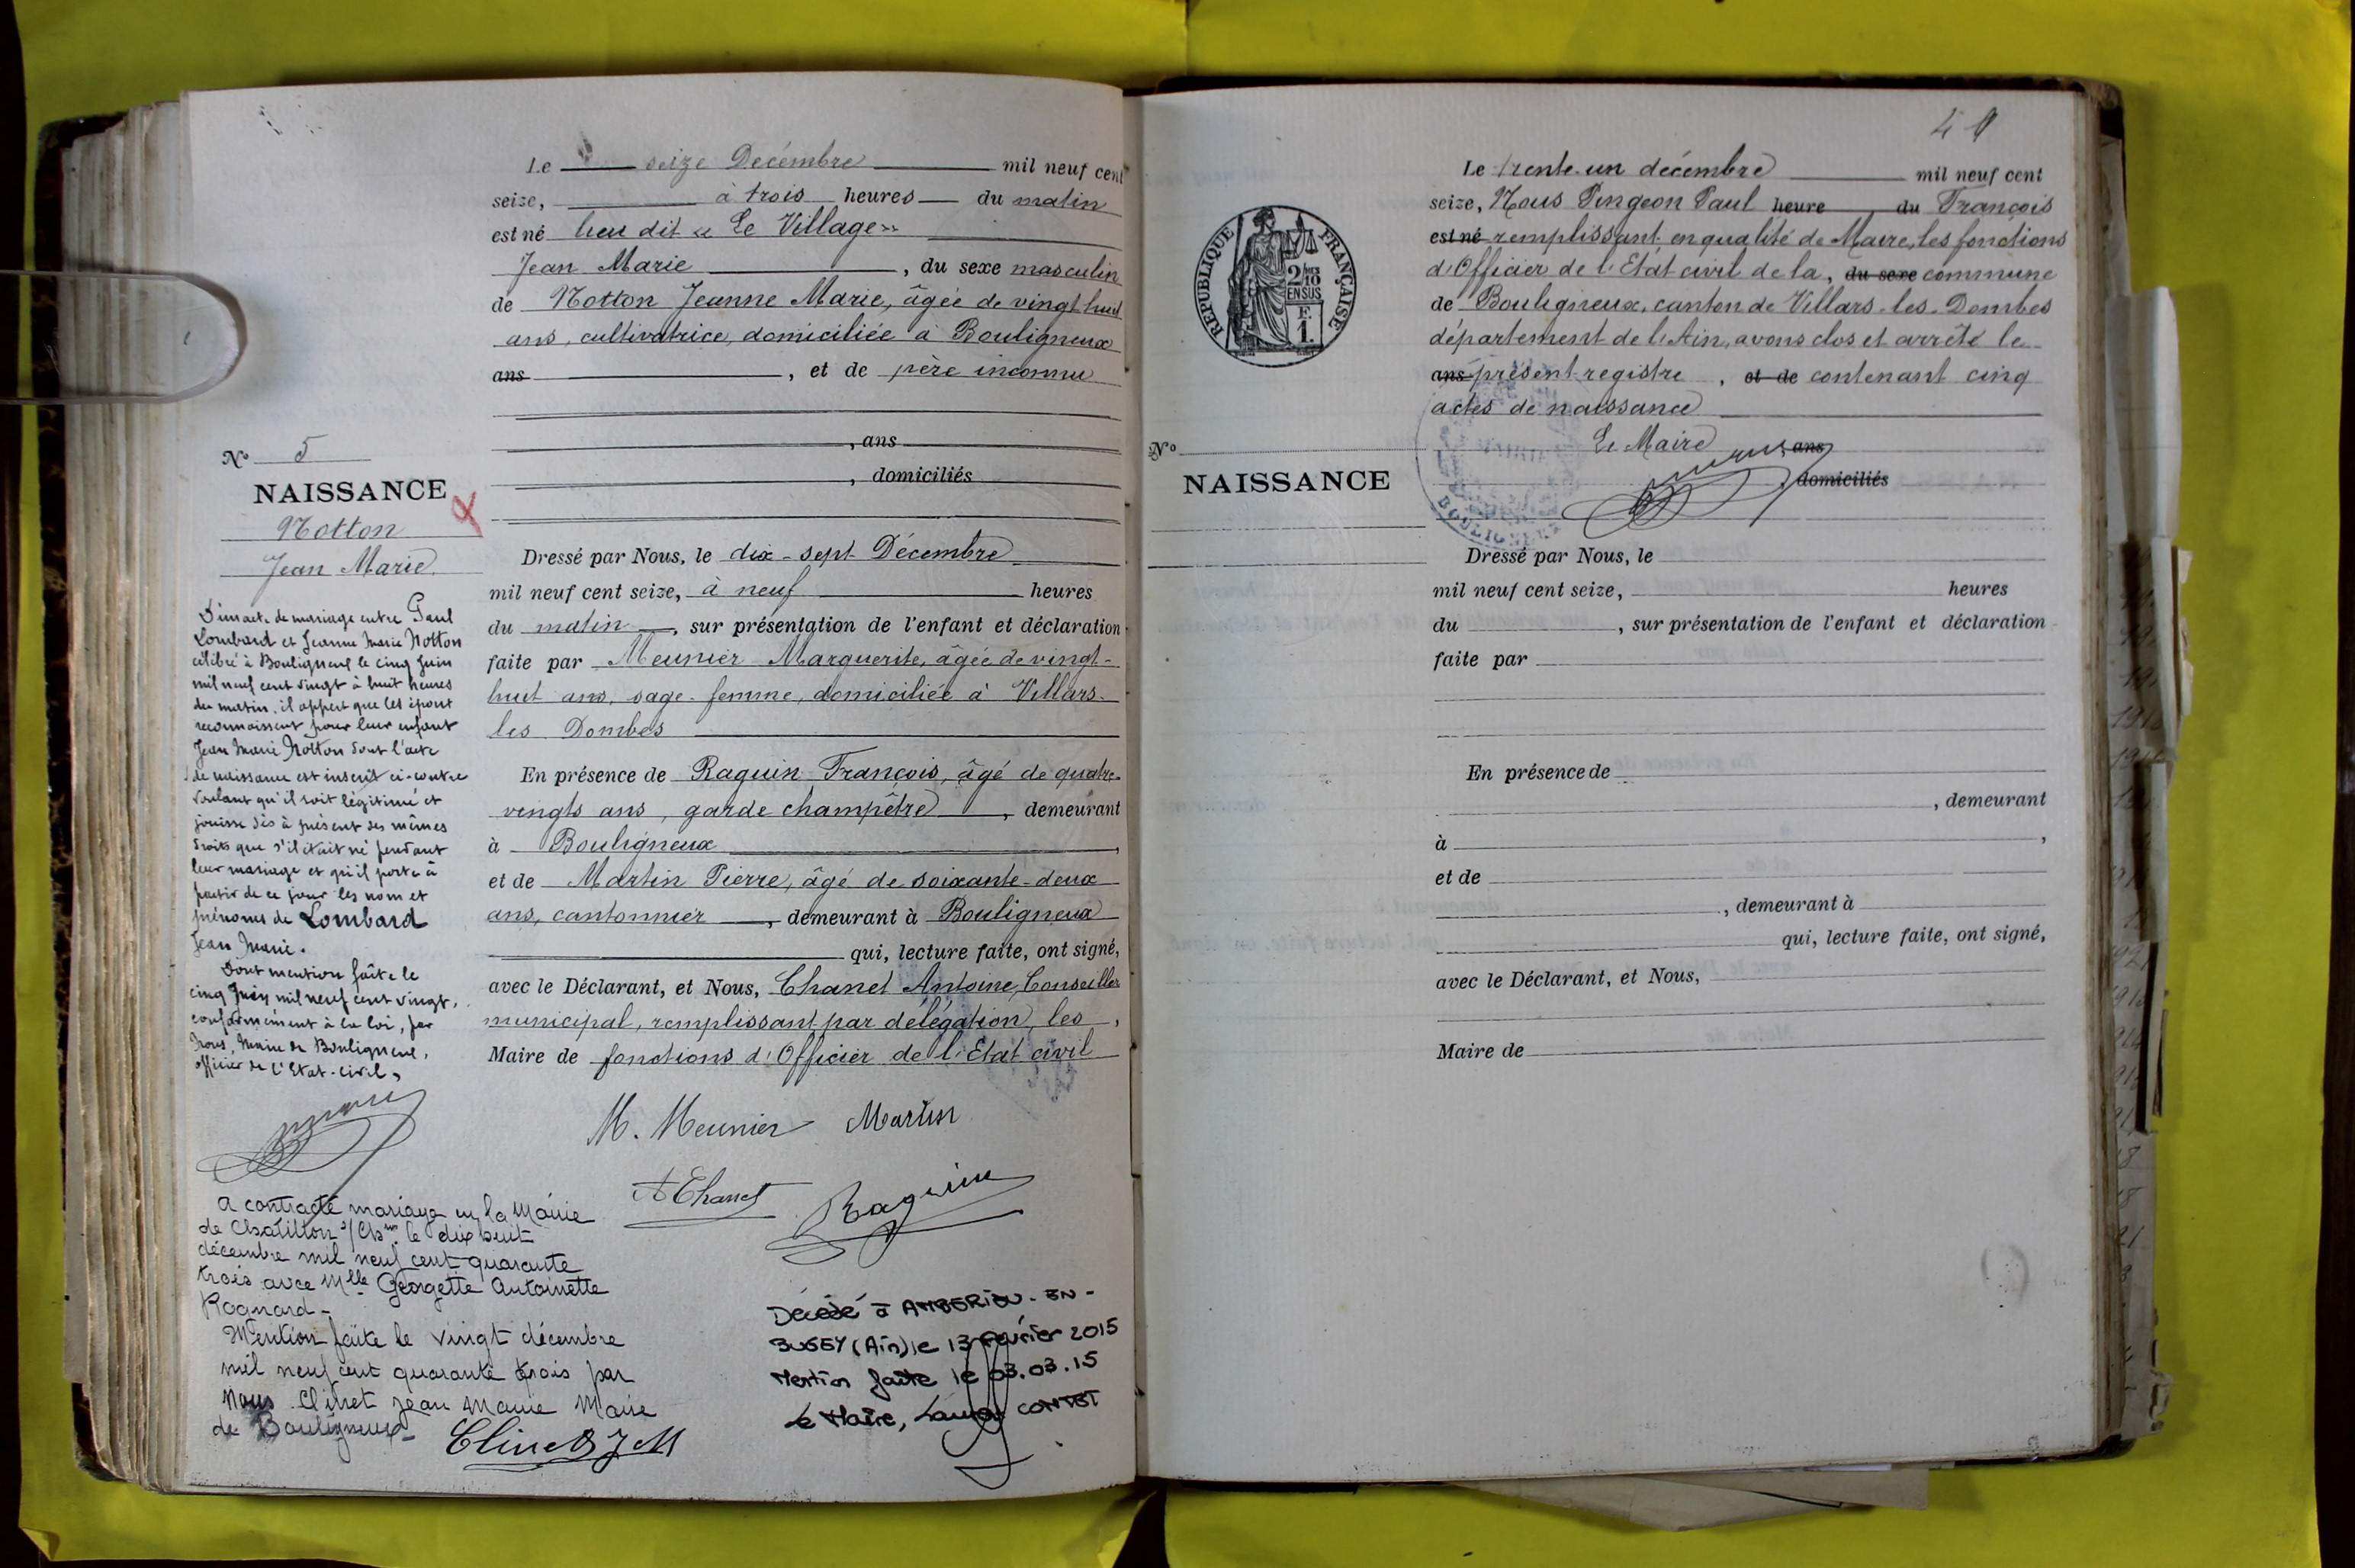 Le seize Décembre mil neuf cent
seize, à trois heures du matin
est né lieu dit « Le Village »
Jean Marie, du sexe masculin
de Notton Jeanne Marie, âgée de vingt huit
ans, cultivatrice, domiciliée à Bouligneux
ans, et de père inconnu
, ans
, domiciliés
N° 5
NAISSANCE
Notton
Jean Marie
D'un acte de mariage entre Paul
Lombard et Jeanne Marie Notton
célébré à Bouligneux le cinq Juin
mil neuf cent vingt à huit heures
du matin, il appert que les époux
reconnaissent pour leur enfant
Jean Marie Notton dont l'acte
de naissance est inscrit ci-contre
voulant qu'il soit légitimé et
jouisse dès à présent des mêmes
droits que s'il était né pendant
leur mariage et qu'il porte à
partir de ce jour les nom et
prénoms de Lombard
Jean Marie.
Dont mention faite le
cinq Juin mil neuf cent vingt,
conformément à la loi, par
Nous, Maire de Bouligneux,
officier de l'Etat-civil,
A contracté mariage en la Mairie
de Chatillon s/ Ch. le dix huit
décembre mil neuf cent quarante
trois avec Mlle Georgette Antoinette
Rognard -
Mention faite le vingt décembre
mil neuf cent quarante trois par
Nous Clinet Jean Marie Maire
de Bouligneux -
Clinet J M
Dressé par Nous, le dix-sept Décembre
mil neuf cent seize, à neuf heures
du matin, sur présentation de l'enfant et déclaration
faite par Meunier Marguerite, âgée de vingt-
huit ans, sage-femme, domiciliée à Villars-
les Dombes
En présence de Raquin François, âgé de quatre-
vingts ans, garde champêtre, demeurant
à Bouligneux,
et de Martin Pierre, âgé de soixante-deux
ans, cantonnier, demeurant à Bouligneux
qui, lecture faite, ont signé,
avec le Déclarant, et Nous, Chanel Antoine, Conseiller
municipal, remplissant par délégation, les,
Maire de fonctions d'Officier de l'Etat civil
M. Meunier Martin
A Chanel Raquin
Décédé à AMBERIEU-EN-
BUGEY (Ain) le 13 février 2015
Mention faite le 03.03.15
Le Maire, COMTET
41
Le trente-un décembre mil neuf cent
seize, Nous Pingeon Paul heure du François
est né remplissant en qualité de Maire, les fonctions
d'Officier de l'Etat civil de la, du sexe commune
de Bouligneux, canton de Villars-les-Dombes
département de l'Ain, avons clos et arrêté le
ans présent registre, et de contenant cinq
actes de naissance
Le Maire, ans
, domiciliés
RÉPUBLIQUE FRANÇAISE
2/10
EN SUS
F
1.
BOULIGNEUX
N°
NAISSANCE
Dressé par Nous, le
mil neuf cent seize, heures
du, sur présentation de l'enfant et déclaration
faite par
En présence de
, demeurant
à,
et de
, demeurant à
qui, lecture faite, ont signé,
avec le Déclarant, et Nous,
Maire de